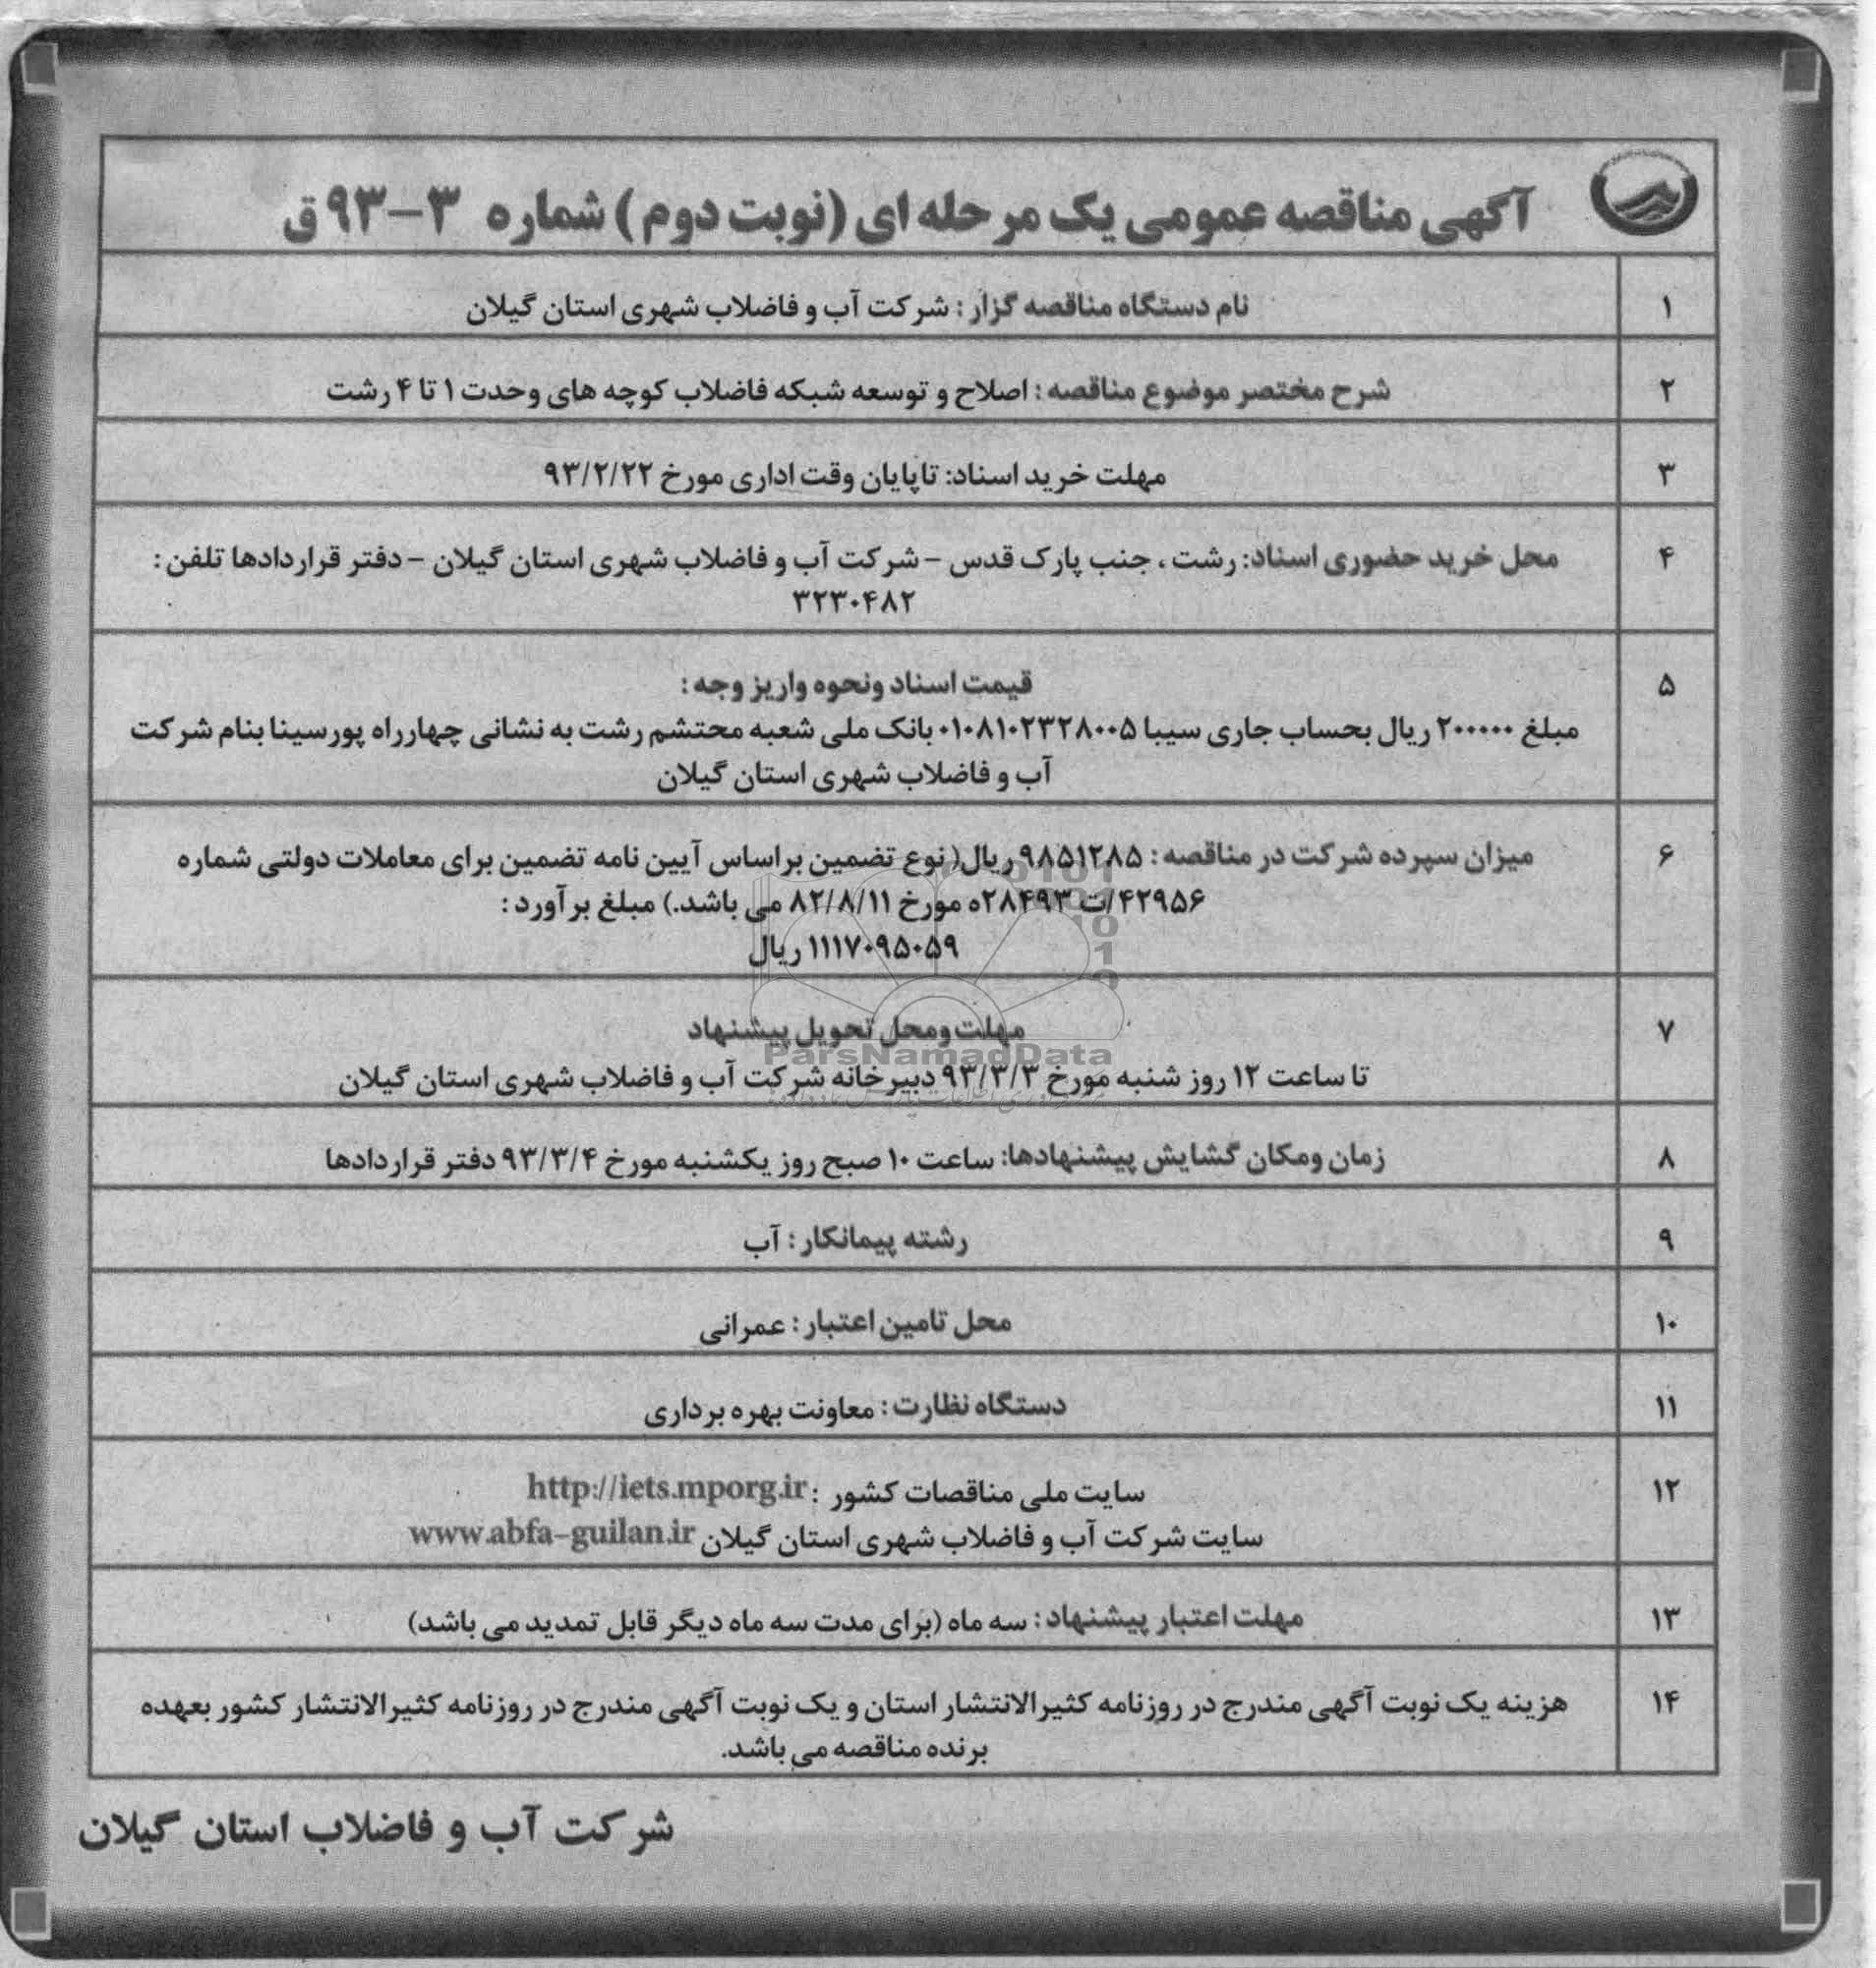 آگهی مناقصه عمومی یک مرحله ای (نوبت دوم) شماره ۳-۹۳ق
۱
نام دستگاه مناقصه گزار: شرکت آب و فاضلاب شهری استان گیلان
۲
شرح مختصر موضوع مناقصه: اصلاح و توسعه شبکه فاضلاب کوچه های وحدت ۱ تا ۴ رشت
۳
مهلت خرید اسناد: تاپایان وقت اداری مورخ ۹۳/۲/۲۲
۴
محل خرید حضوری اسناد: رشت، جنب پارک قدس - شرکت آب و فاضلاب شهری استان گیلان - دفتر قراردادها تلفن:
۳۲۳۰۴۸۲
۵
قیمت اسناد ونحوه واریز وجه:
مبلغ ۲۰۰۰۰۰ ریال بحساب جاری سیبا ۰۱۰۸۱۰۲۳۲۸۰۰۵ بانک ملی شعبه محتشم رشت به نشانی چهارراه پورسینا بنام شرکت
آب و فاضلاب شهری استان گیلان
۶
میزان سپرده شرکت در مناقصه: ۹۸۵۱۲۸۵ ریال( نوع تضمین براساس آیین نامه تضمین برای معاملات دولتی شماره
۴۲۹۵۶/ت ۲۸۴۹۳ه مورخ ۸۲/۸/۱۱ می باشد.) مبلغ برآورد:
۱۱۱۷۰۹۵۰۵۹ ریال
۷
مهلت ومحل تحویل پیشنهاد
ParsNamadData
تا ساعت ۱۲ روز شنبه مورخ ۹۳/۳/۳ دبیرخانه شرکت آب و فاضلاب شهری استان گیلان
۸
زمان ومکان گشایش پیشنهادها: ساعت ۱۰ صبح روز یکشنبه مورخ ۹۳/۳/۴ دفتر قراردادها
۹
رشته پیمانکار: آب
۱۰
محل تامین اعتبار: عمرانی
۱۱
دستگاه نظارت: معاونت بهره برداری
۱۲
سایت ملی مناقصات کشور: http://iets.mporg.ir
سایت شرکت آب و فاضلاب شهری استان گیلان www.abfa-guilan.ir
۱۳
مهلت اعتبار پیشنهاد: سه ماه (برای مدت سه ماه دیگر قابل تمدید می باشد)
۱۴
هزینه یک نوبت آگهی مندرج در روزنامه کثیرالانتشار استان و یک نوبت آگهی مندرج در روزنامه کثیرالانتشار کشور بعهده
برنده مناقصه می باشد.
شرکت آب و فاضلاب استان گیلان